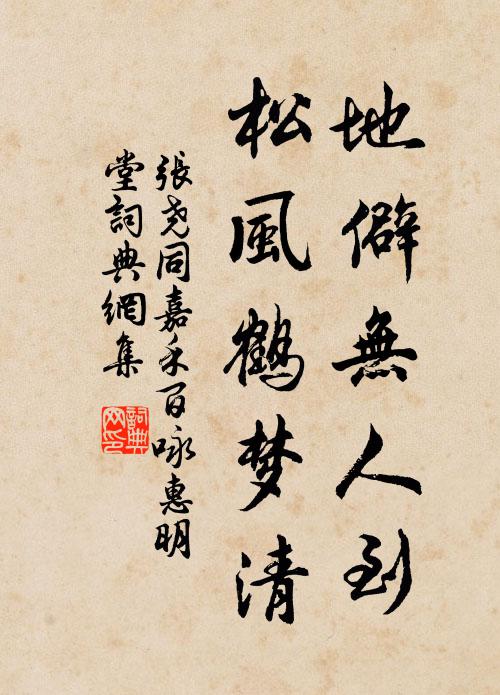 地僻無人到
松風鶴梦清
張尭同嘉禾百咏惠明
堂詞典網集
詞典
网印